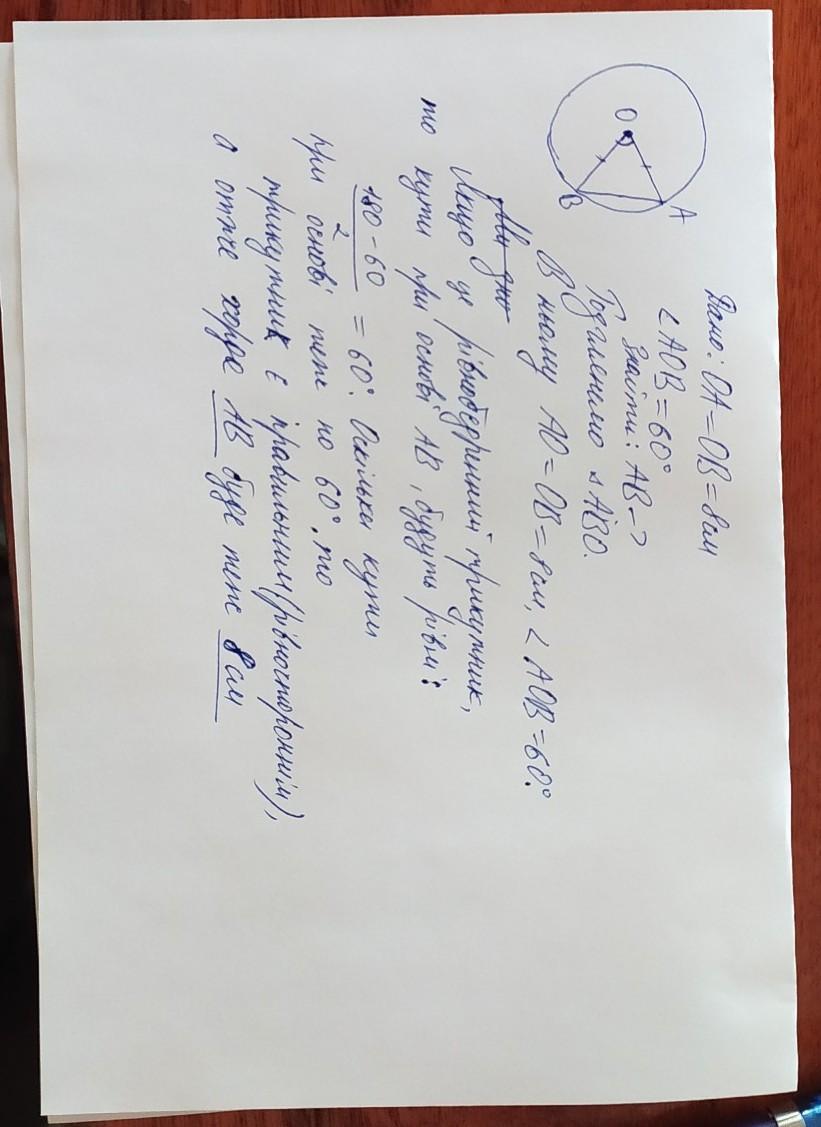 Дано: OA = OB = 8 см
< AOB = 60°
Знайти: AB - ?
Розглянемо △ ABO.
В ньому AO = OB = 8 см, < AOB = 60°
Якщо це рівнобедренний трикутник,
то кути при основі AB, будуть рівні:
180 - 60 / 2 = 60°. Оскільки кути
при основі теж по 60°, то
трикутник є правильним (рівностороннім),
а отже хорда AB буде теж 8 см
O
A
B